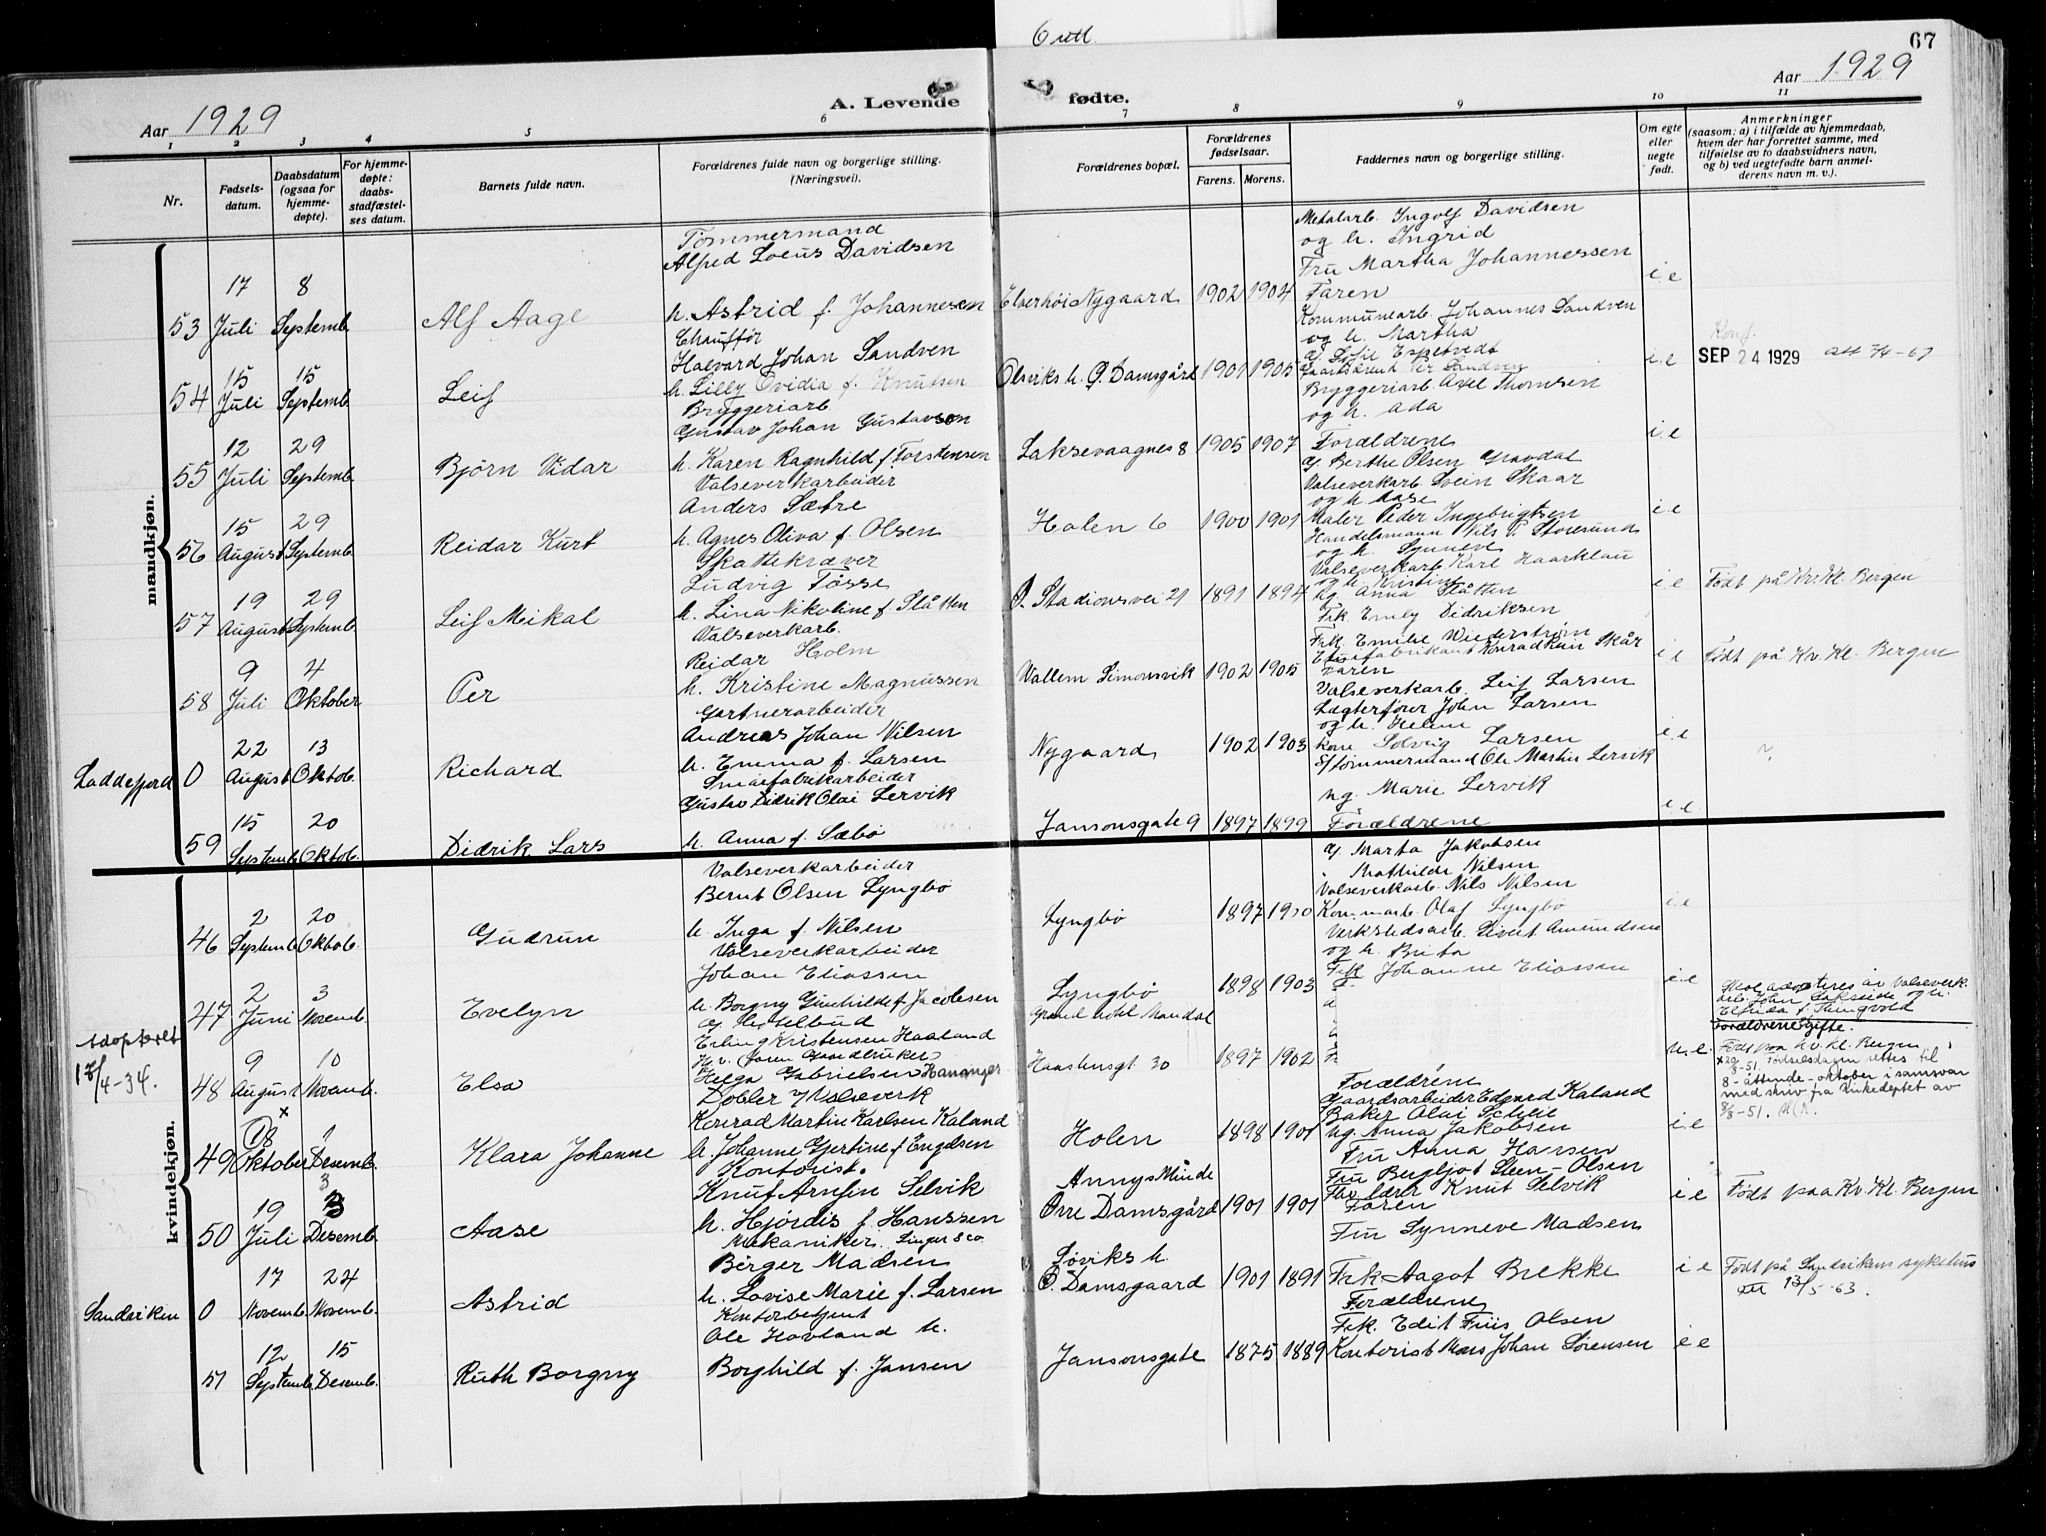 6 utl.
67
Aar 1929
A. Levende fødte.
Aar 1929
1 2 3 4 5 6 7 8 9 10 11
Nr.
Fødsels-
datum.
Daabsdatum
(ogsaa for
hjemme-
døpte).
For hjemme-
døpte:
daabs-
stadfæstel-
ses datum.
Barnets fulde navn.
Forældrenes fulde navn og borgerlige stilling.
(Næringsvei).
Forældrenes bopæl.
Forældrenes
fødselsaar.
Farens. Morens.
Faddernes navn og borgerlige stilling.
Om egte
eller
uegte
født.
Anmerkninger
(saasom: a) i tilfælde av hjemmedaab,
hvem der har forrettet samme, med
tilføielse av to daabsvidners navn,
og b) ved uegtefødte barn anmel-
derens navn m. v.).
mandkjøn.
53
17 Juli
8 Septemb.
Alf Aage
Tømmermand
Alfred Loeus Davidsen
h. Astrid f. Johannesen
Elverhøi Nygaard
1902 1904
Metalarb. Ingolf Davidsen
og h. Ingrid
Fru Martha Johannessen
Faren
i.e
54
15 Juli
15 Septemb.
Leif
Chauffør
Halvard Johan Sandven
h. Lilly Ovidia f. Knutsen
Olsviks h. Ø. Damsgård
1901 1905
Kommunearb. Johannes Sandven
og h. Martha
i.e
Konf.
SEP 24 1929
att 7/4-67
55
12 Juli
29 Septemb.
Bjørn Vidar
Bryggeriarb.
Gustav Johan Gustavson
h. Karen Ragnhild f. Torstensen
Laksevaagnes 8
1905 1907
Bryggeriarb. Axel Thomsen
og h. Ada
Forældrene
i.e
56
15 August
29 Septemb.
Reidar Kurt
Valseverkarbeider
Anders Sætre
h. Agnes Oliva f. Olsen
Holen 6
1900 1901
g. Berthe Olsen Gravdal
Valseverkarb. Svein Skaar
og h. Aase
Maler Peder Ingebrigtsen
i.e
57
19 August
29 Septemb.
Leif Meikal
Skattekræver
Ludvig Tøsse
h. Lina Nikoline f. Slåtten
Ø. Stadionsvei 21
1891 1894
Handelsmann Nils T. Storesund
og h. Synneve
Valseverkarb. Karl Haarklau
og h. Kristine
ug. Anna Slåtten
i e
Født på Kv. Kl. Bergen
58
9 Juli
4 Oktober
Per
Valseverkarb.
Reidar Holm
h. Kristine Magnussen
Vallem Simonsvik
1902 1905
Frk Emly Didriksen
Frk Emilie Wiederstrøm
Faren
i e
Født på Kv. Kl. Bergen
Laddefjord 0
22 August
13 Oktob.
Richard
Gartnerarbeider
Andreas Johan Nilsen
h. Emma f. Larsen
Nygaard
1902 1903
Valseverkarb. Leif Larsen
Lægterfører John Larsen
og h. Helene
Kone Solveig Larsen
i.e
59
15 Septemb.
20 Oktob.
Didrik Lars
Smørfabrikarbeider
Gustav Didrik Olai Lervik
h. Anna f. Sæbø
Jansonsgate 9
1897 1899
S/tømmermand Ole Martin Lervik
ug. Marie Lervik
Forældrene
i e
kvindekjøn.
46
2 Septemb.
20 Oktob.
Gudrun
Valseverkarbeider
Bernt Olsen Lyngbø
h. Inga f. Nilsen
Lyngbø
1897 1900
g. Marta Jakobsen
. Mathilde Nilsen
Valseverkarb. Nils Nilsen
Kommarb. Olaf Lyngbø
i.e
47
2 Juni
3 Novemb.
Evelyn
Valseverkarbeider
Johan Eliassen
h. Borgny Gunhilde f. Jacobsen
Lyngbø
1898 1903
Verkstedsarb. Sivert Amundsen
og h. Brita
Frk. Johanne Eliassen
i.e
adopteret
13/4-34.
48
9 August
10 Novemb.
Elsa
g. Hotelbud
Erling Kristensen Haaland
Helga Gabrielsen Hananger
Grand Hotel Mandal
Haakonsgt. 30
1897 1902
u.e.
adopteres av Valseverk
arb. John Lakseide og h.
Elfrida f. Tungvold
Forældrene gifte.
Født paa Kv. Kl. Bergen
49
x
18 Oktober
1 Desemb.
Klara Johanne
Dobler Valseverk
Konrad Martin Karlsen Kaland
h. Johanne Gjertine f. Engelsen
Holen
1898 1901
Forældrene
Gaardsarbeider Edvard Kaland
Baker Olai Scheie
ug. Anna Jakobsen
i e
x 29/8-51. Fødselsdagen rettes til
8-åttende-oktober i samsvar
med skriv fra Kirkedeptet av
8/8-51.
50
19 Juli
3 Desemb.
Aase
Kontorist.
Knut Arnfin Selvik
h. Hjørdis f. Hanssen
Annys Minde
Øvre Damsgård
1901 1901
Fru Anna Hansen
Fru Bergljot Steen-Olsen
lærer Knut Selvik
Faren
i e
Født paa Kv. Kl. Bergen
Sandviken 0
17 Novemb.
24 Novemb.
Astrid
Mekaniker. Singer & co.
Børger Madsen
h. Lovise Marie f. Larsen
Løviks h.
Ø. Damsgaard
1901 1891
Fru Synneve Madsen
Frk Aagot Brekke
Forældrene
i e
Født på Sandvikens sykehus
att 13/5-63.
51
12 Septemb.
15 Desemb.
Ruth Borgny
Kontorbetjent
Ole Hovland h.
Borghild f. Jansen
Jansonsgate
1875 1889
Frk. Edit Friis Olsen
Kontorist Mons Johan Sørensen
i e